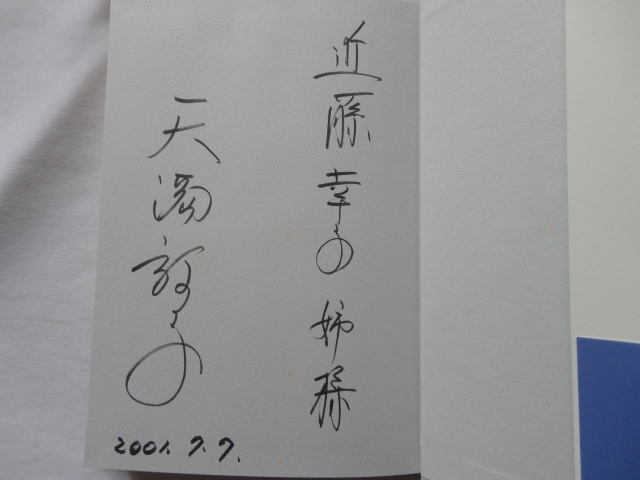 近藤幸子姉様
天満敦子
2001. 7. 7.